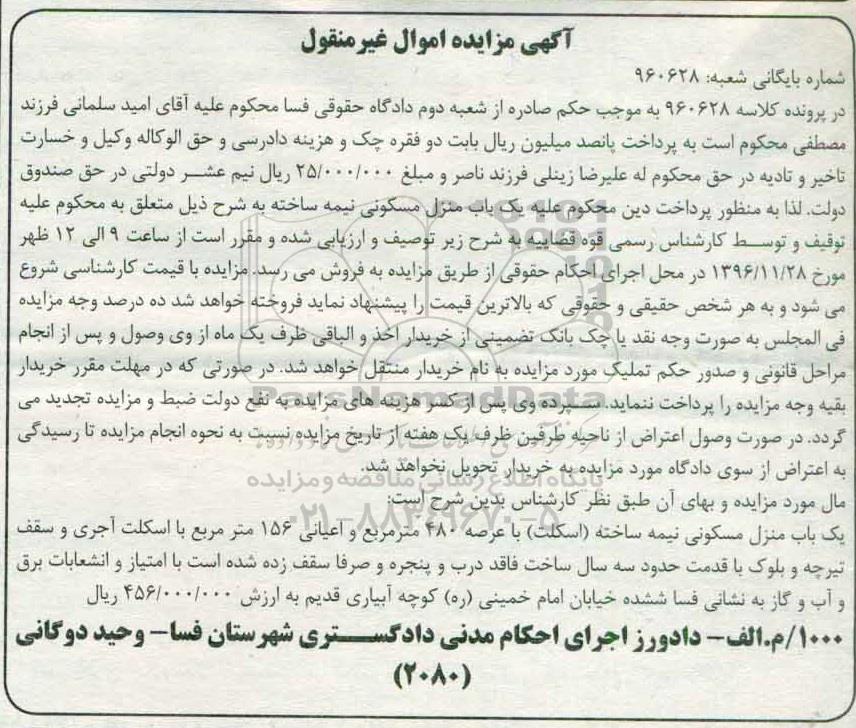 آگهی مزایده اموال غیرمنقول
شماره بایگانی شعبه: ۹۶۰۶۲۸
در پرونده کلاسه ۹۶۰۶۲۸ به موجب حکم صادره از شعبه دوم دادگاه حقوقی فسا محکوم علیه آقای امید سلمانی فرزند
مصطفی محکوم است به پرداخت پانصد میلیون ریال بابت دو فقره چک و هزینه دادرسی و حق الوکاله وکیل و خسارت
تاخیر و تادیه در حق محکوم له علیرضا زینلی فرزند ناصر و مبلغ ۲۵/۰۰۰/۰۰۰ ریال نیم عشر دولتی در حق صندوق
دولت. لذا به منظور پرداخت دین محکوم علیه یک باب منزل مسکونی نیمه ساخته به شرح ذیل متعلق به محکوم علیه
توقیف و توسط کارشناس رسمی قوه قضاییه به شرح زیر توصیف و ارزیابی شده و مقرر است از ساعت ۹ الی ۱۲ ظهر
مورخ ۱۳۹۶/۱۱/۲۸ در محل اجرای احکام حقوقی از طریق مزایده به فروش می رسد. مزایده با قیمت کارشناسی شروع
می شود و به هر شخص حقیقی و حقوقی که بالاترین قیمت را پیشنهاد نماید فروخته خواهد شد ده درصد وجه مزایده
فی المجلس به صورت وجه نقد یا چک بانک تضمینی از خریدار اخذ و الباقی ظرف یک ماه از وی وصول و پس از انجام
مراحل قانونی و صدور حکم تملیک مورد مزایده به نام خریدار منتقل خواهد شد. در صورتی که در مهلت مقرر خریدار
بقیه وجه مزایده را پرداخت ننماید. سپرده وی پس از کسر هزینه های مزایده به نفع دولت ضبط و مزایده تجدید می
گردد. در صورت وصول اعتراض از ناحیه طرفین ظرف یک هفته از تاریخ مزایده نسبت به نحوه انجام مزایده تا رسیدگی
به اعتراض از سوی دادگاه مورد مزایده به خریدار تحویل نخواهد شد.
مال مورد مزایده و بهای آن طبق نظر کارشناس بدین شرح است:
یک باب منزل مسکونی نیمه ساخته (اسکلت) با عرصه ۴۸۰ مترمربع و اعیانی ۱۵۶ متر مربع با اسکلت آجری و سقف
تیرچه و بلوک با قدمت حدود سه سال ساخت فاقد درب و پنجره و صرفا سقف زده شده است با امتیاز و انشعابات برق
و آب و گاز به نشانی فسا ششده خیابان امام خمینی (ره) کوچه آبیاری قدیم به ارزش ۴۵۶/۰۰۰/۰۰۰ ریال
۱۰۰۰/م.الف- دادورز اجرای احکام مدنی دادگستری شهرستان فسا- وحید دوگانی
(۲۰۸۰)
ParsNamadData
پایگاه اطلاع رسانی مناقصه و مزایده
۰۲۱-۸۸۳۴۹۶۷۰-۵